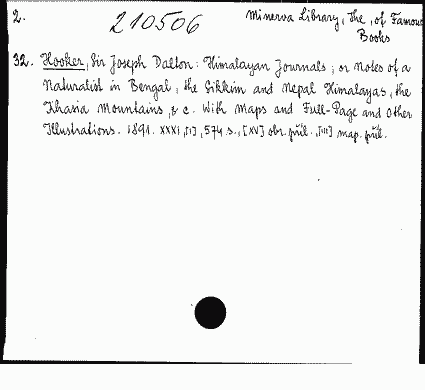 2.
210506
Minerva Library, The, of Famous
Books
32. Hooker, Sir Joseph Dalton: Himalayan Journals; or Notes of a
Naturalist in Bengal, the Sikkim and Nepal Himalayas, the
Khasia Mountains, & c. With Maps and Full-Page and Other
Illustrations. 1891. XXXI, [I], 574 s., [XV] obr. příl., [III] map. příl.